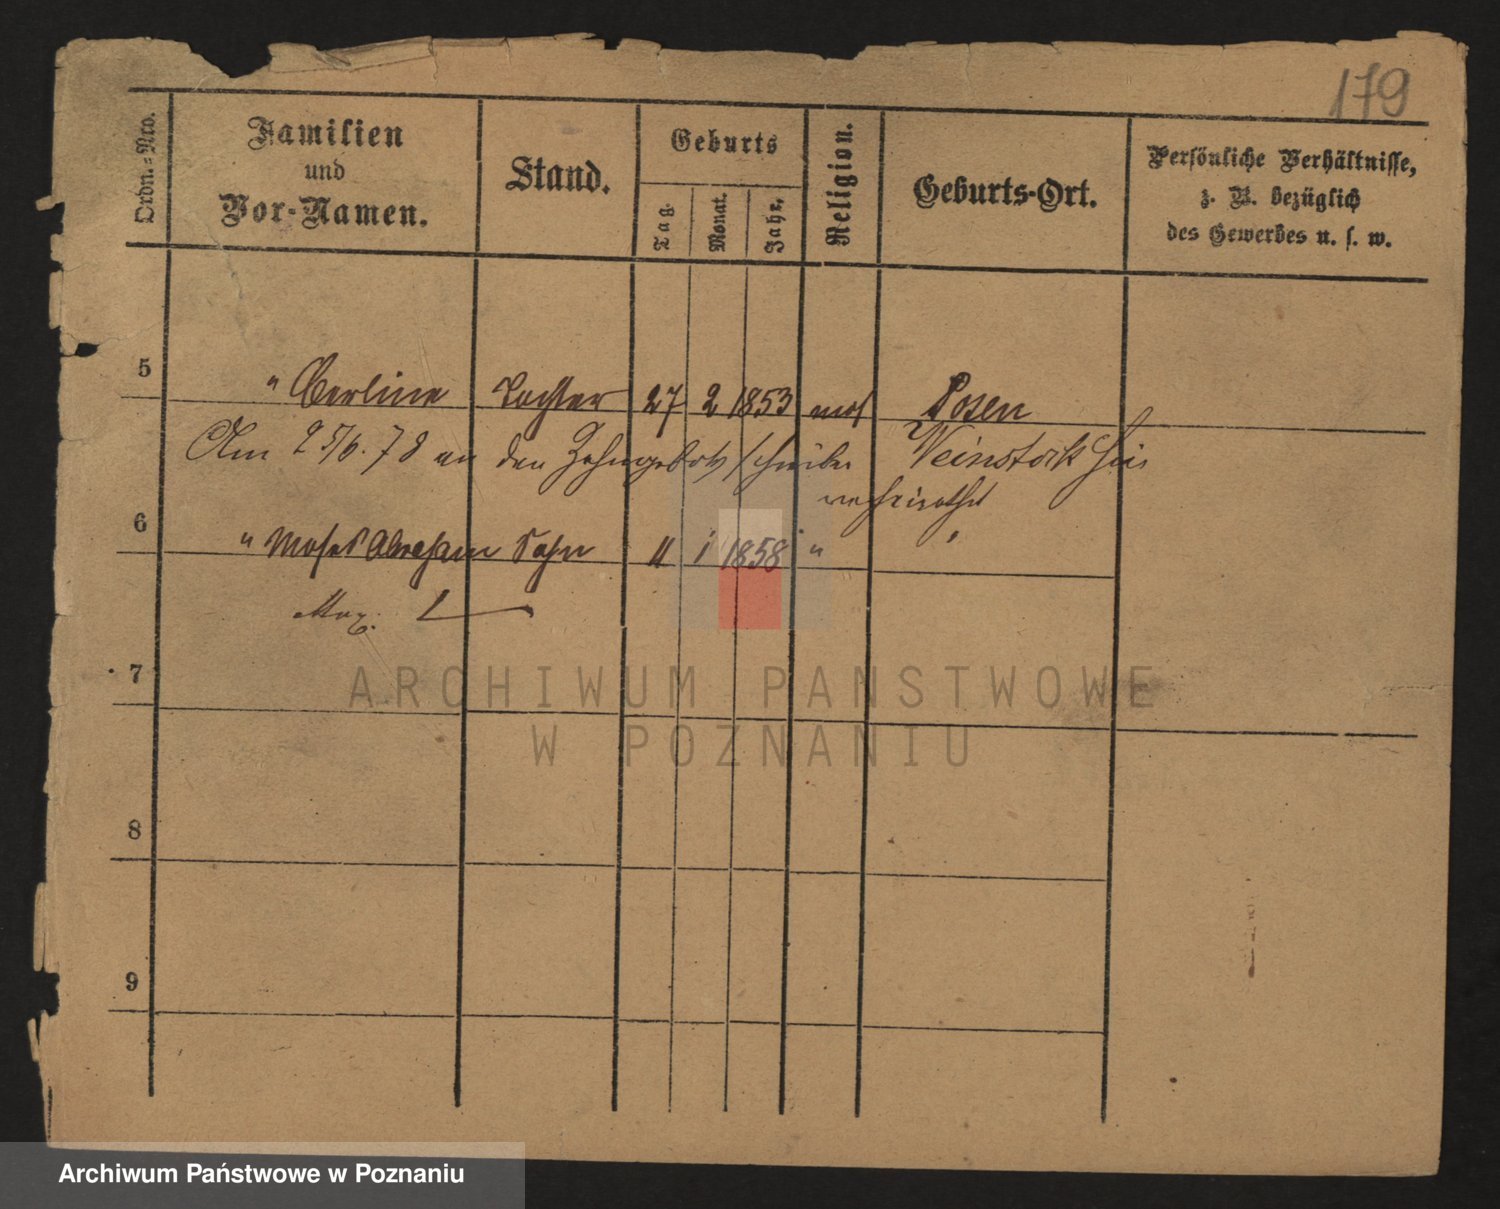 179
Ordn.=Nro.
Familien
und
Vor-Namen.
Stand.
Geburts
Tag.
Monat.
Jahr.
Religion.
Geburts-Ort.
Persönliche Verhältnisse,
z. B. bezüglich
des Gewerbes u. s. w.
5 " Berline Tochter 27 2 1853 mos Posen
Am 25/6.78 an den schreiber Weinstock hier
verheirathet
6 " Moses Abraham Sohn 11 1 1858 "
Max.
7
8
9
ARCHIWUM PAŃSTWOWE
W POZNANIU
Archiwum Państwowe w Poznaniu